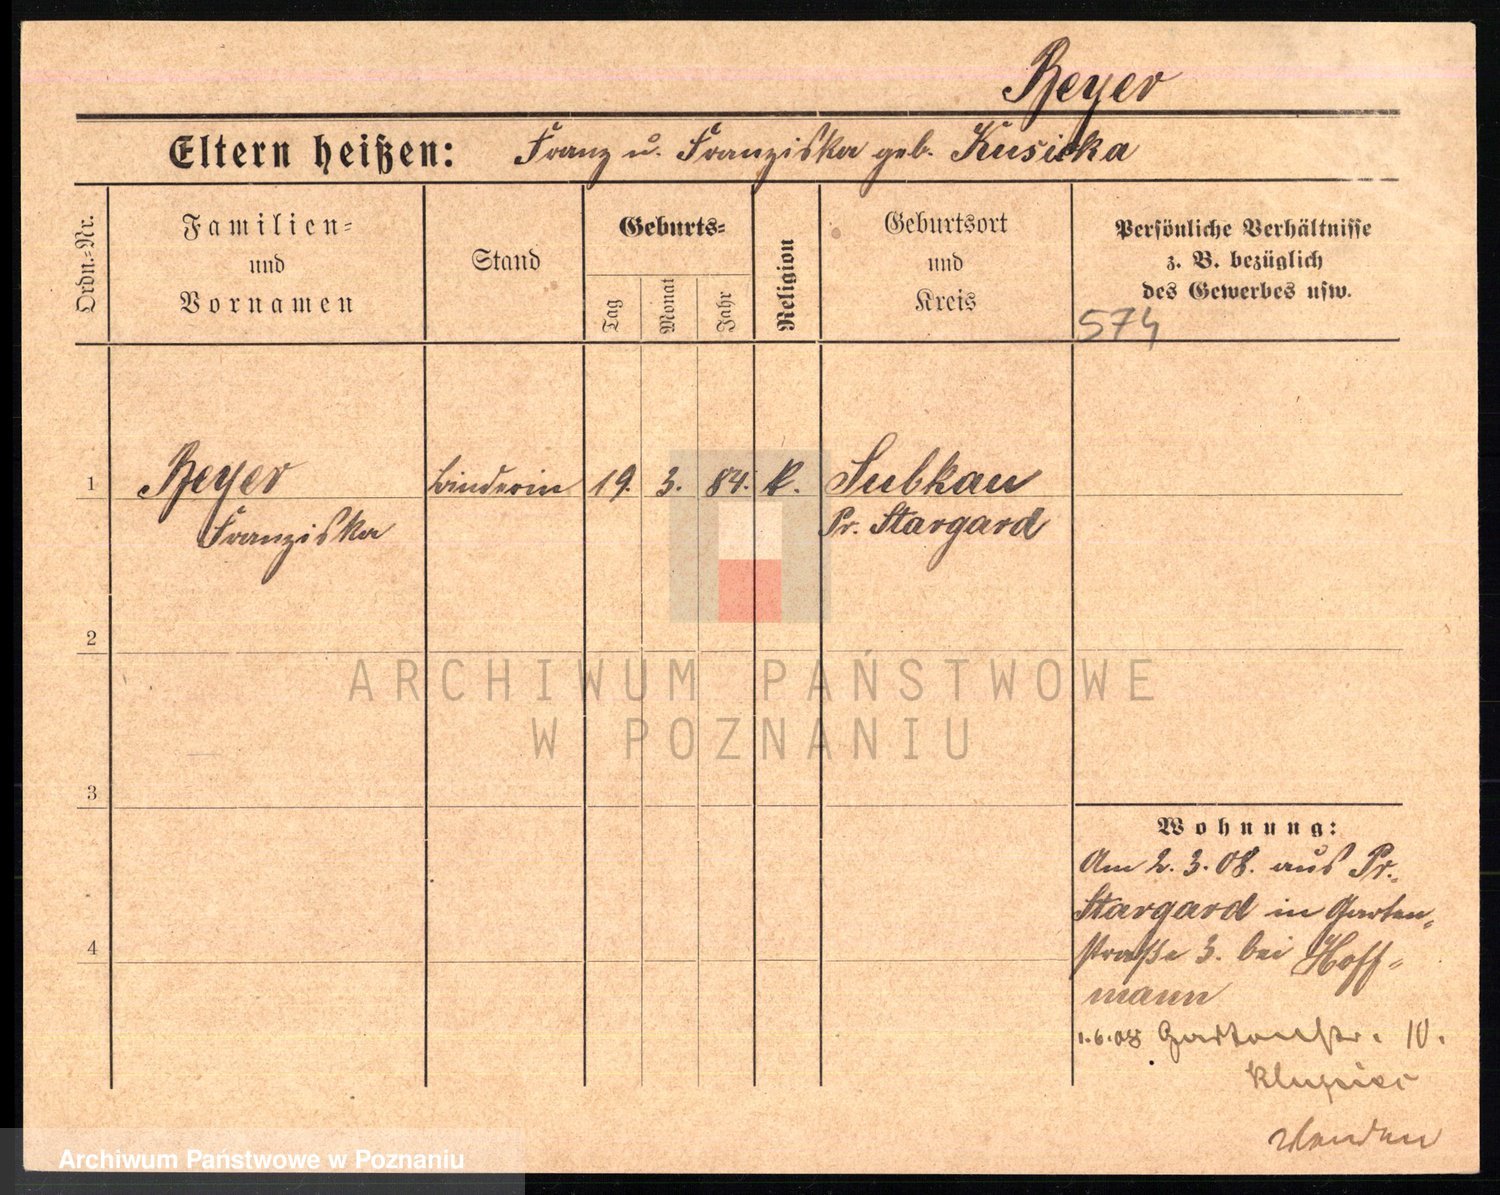 Beyer
Eltern heißen: Franz u. Franziska geb. Kusicka
Ordn.-Nr.
Familien-
und
Vornamen
Stand
Geburts-
Tag
Monat
Jahr
Religion
Geburtsort
und
Kreis
Persönliche Verhältnisse
z. B. bezüglich
des Gewerbes usw.
574
1 Beyer binderin 19. 3. 84. k. Subkau
Franziska Pr. Stargard
2
3
4
Wohnung:
Am 2.3.08. aus Pr.
Stargard in Garten-
straße 3. bei Hoff-
mann
1.6.08 Gartenstr. 10.
ARCHIWUM PAŃSTWOWE
W POZNANIU
Archiwum Państwowe w Poznaniu